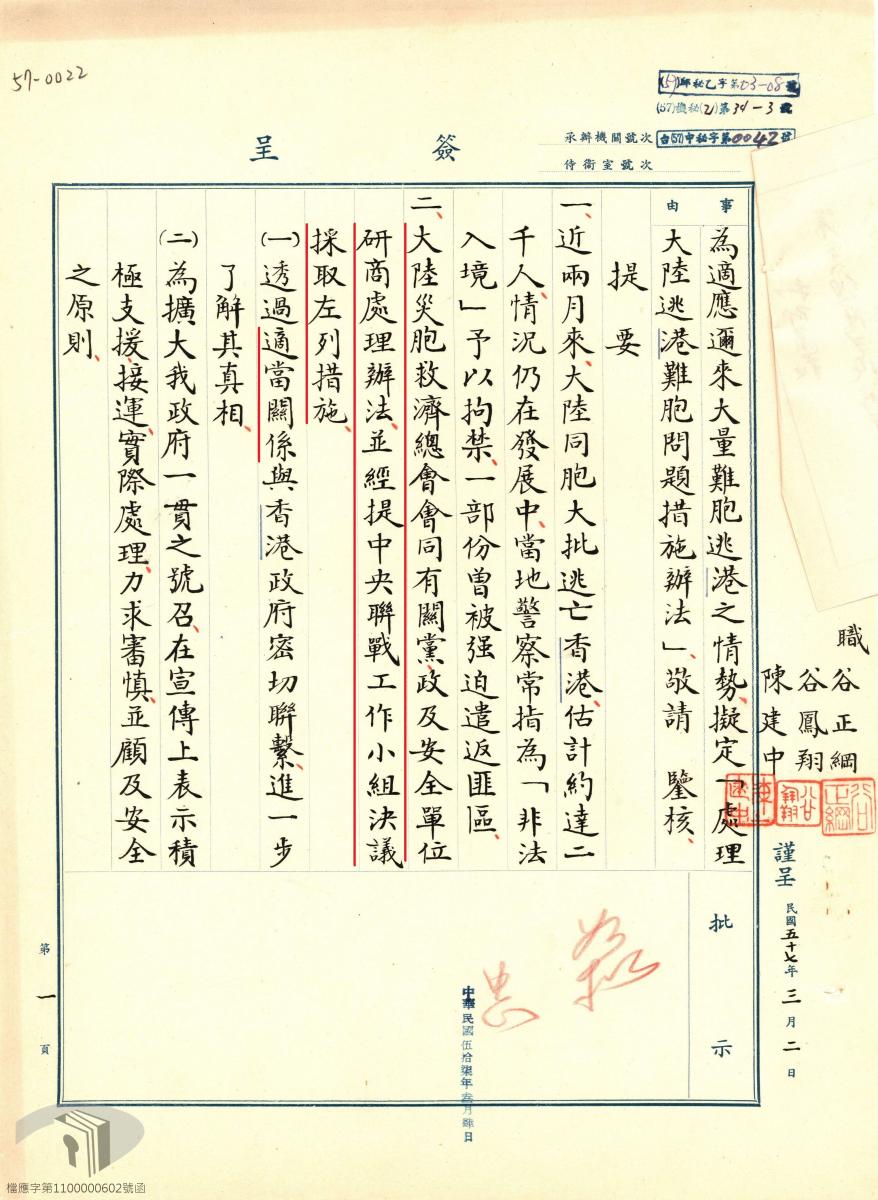 57-0022
(57)中秘乙字第03-08號
(57)機秘(乙)第34-3號
承辦機關號次 台(57)中秘字第0042號
侍衛室號次
簽呈
事由
為適應邇來大量難胞逃港之情勢、擬定「處理
大陸逃港難胞問題措施辦法」、敬請 鑒核、
提要
一、近兩月來、大陸同胞大批逃亡香港、估計約達二
千人、情況仍在發展中、當地警察常指為「非法
入境」予以拘禁、一部份曾被强迫遣返匪區、
二、大陸災胞救濟總會會同有關黨、政及安全單位
研商處理辦法、並經提中央聯戰工作小組決議
採取左列措施、
(一)透過適當關係與香港政府密切聯繫、進一步
了解其真相、
(二)為擴大我政府一貫之號召、在宣傳上表示積
極支援、接運、實際處理、力求審慎、並顧及安全
之原則、
職
谷正綱
谷鳳翔
陳建中
谨呈
民國五十七年三月二日
批示
中華民國伍拾柒年叁月肆日
第一頁
檔應字第1100000602號函